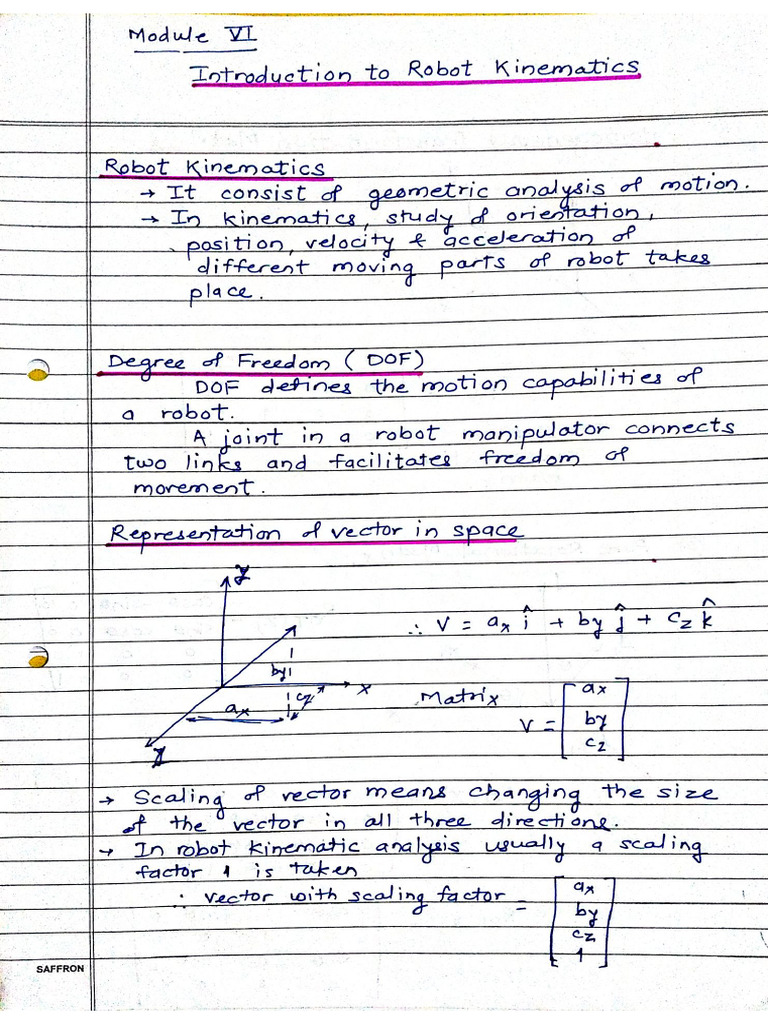 Module VI
Introduction to Robot Kinematics
Robot Kinematics
→ It consist of geometric analysis of motion.
→ In kinematics, study of orientation,
position, velocity & acceleration of
different moving parts of robot takes
place.
Degree of Freedom (DOF)
DOF defines the motion capabilities of
a robot.
A joint in a robot manipulator connects
two links and facilitates freedom of
movement.
Representation of vector in space
y
∴ V = ax î + by ĵ + cz k̂
by
x
cz
ax
Matrix
V = [ax
by
cz]
z
→ Scaling of vector means changing the size
of the vector in all three directions.
→ In robot kinematic analysis usually a scaling
factor 1 is taken
∴ vector with scaling factor = [ax
by
cz
1]
SAFFRON